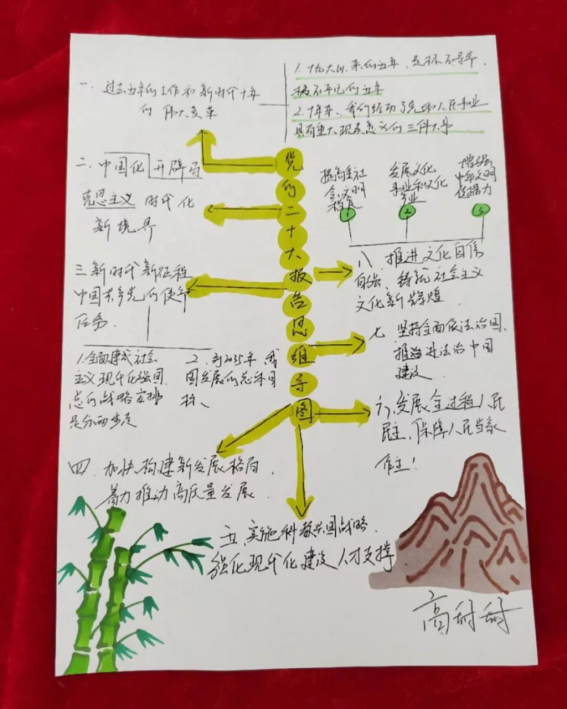 一、过去五年的工作和新时代十年
的伟大变革
1.十九大以来的五年，是极不寻常、
极不平凡的五年
2.十年来，我们经历了党和人民事业
具有重大现实意义的三件大事
党的二十大报告思维导图
二、中国化 开辟马
克思主义 时代化
新境界
三.新时代新征程
中国共产党的使命
任务.
1.全面建成社会
主义现代化强国.
总的战略安排
是分两步走
2、到2035年我
国发展的总体目
标、
四、加快构建新发展格局、
着力推动高质量发展.
五.实施科教兴国战略
强化现代化建设人才支撑
六、发展全过程人民
民主、保障人民当家
作主!
七 坚持全面依法治国.
推进法治中国
建设
八、推进文化自信
自强、铸就社会主义
文化新辉煌
提高社
会文明
程度
1
发展文化
事业和文化
产业
2
增强
中华文明
传播力
3
高甜甜